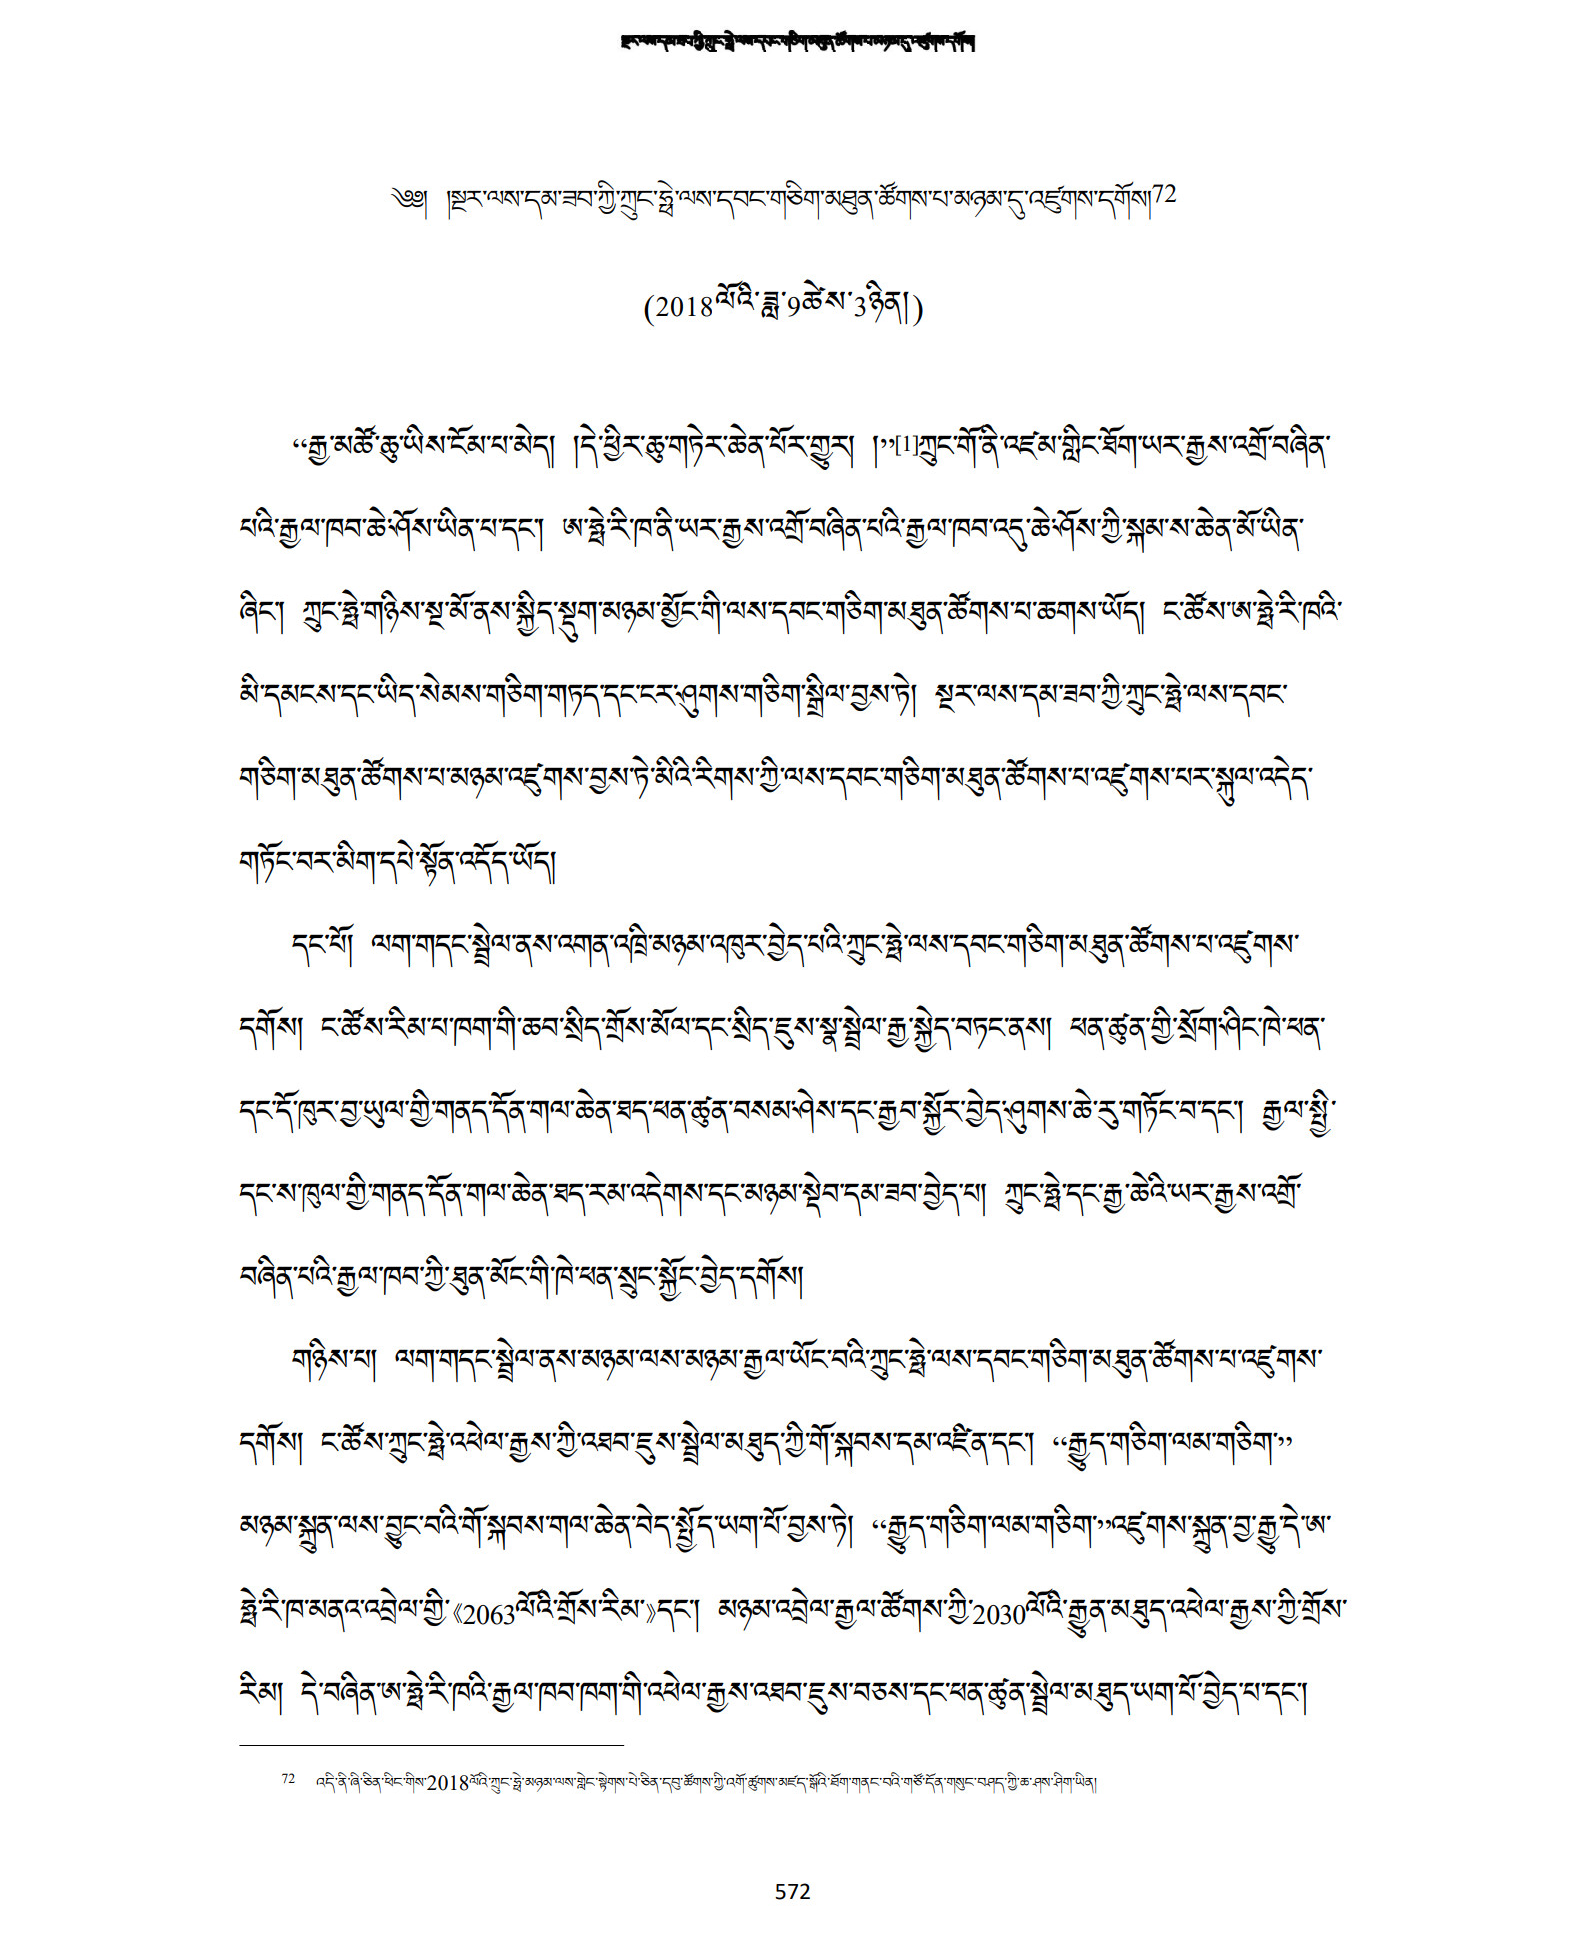 སྔར་ལས་དམ་ཟབ་ཀྱི་ཀྲུང་ཧྥེ་ལས་དབང་གཅིག་མཐུན་ཚོགས་པ་མཉམ་དུ་འཛུགས་དགོས།
༄༅༅། །སྔར་ལས་དམ་ཟབ་ཀྱི་ཀྲུང་ཧྥེ་ལས་དབང་གཅིག་མཐུན་ཚོགས་པ་མཉམ་དུ་འཛུགས་དགོས།72
(2018ལོའི་ཟླ་9ཚེས་3ཉིན།)
“རྒྱ་མཚོ་ཆུ་ཡིས་ངོམ་པ་མེད། །དེ་ཕྱིར་ཆུ་གཏེར་ཆེན་པོར་གྱུར། །”[1]ཀྲུང་གོ་ནི་འཛམ་གླིང་ཐོག་ཡར་རྒྱས་འགྲོ་བཞིན་
པའི་རྒྱལ་ཁབ་ཆེ་ཤོས་ཡིན་པ་དང་། ཨ་ཧྥེ་རི་ཁ་ནི་ཡར་རྒྱས་འགྲོ་བཞིན་པའི་རྒྱལ་ཁབ་འདུ་ཆེ་ཤོས་ཀྱི་སྐམ་ས་ཆེན་མོ་ཡིན་
ཞིང་། ཀྲུང་ཧྥེ་གཉིས་སྔ་མོ་ནས་སྐྱིད་སྡུག་མཉམ་མྱོང་གི་ལས་དབང་གཅིག་མཐུན་ཚོགས་པ་ཆགས་ཡོད། ང་ཚོས་ཨ་ཧྥེ་རི་ཁའི་
མི་དམངས་དང་ཡིད་སེམས་གཅིག་གཏད་དང་ངར་ཤུགས་གཅིག་སྒྲིལ་བྱས་ཏེ། སྔར་ལས་དམ་ཟབ་ཀྱི་ཀྲུང་ཧྥེ་ལས་དབང་
གཅིག་མཐུན་ཚོགས་པ་མཉམ་འཛུགས་བྱས་ཏེ་མིའི་རིགས་ཀྱི་ལས་དབང་གཅིག་མཐུན་ཚོགས་པ་འཛུགས་པར་སྐུལ་འདེད་
གཏོང་བར་མིག་དཔེ་སྟོན་འདོད་ཡོད།
དང་པོ། ལག་གདང་སྦྲེལ་ནས་འགན་འཁྲི་མཉམ་འཁུར་བྱེད་པའི་ཀྲུང་ཧྥེ་ལས་དབང་གཅིག་མཐུན་ཚོགས་པ་འཛུགས་
དགོས། ང་ཚོས་རིམ་པ་ཁག་གི་ཆབ་སྲིད་གྲོས་མོལ་དང་སྲིད་ཇུས་སྣ་སྦྲེལ་རྒྱ་སྐྱེད་བཏང་ནས། ཕན་ཚུན་གྱི་སྲོག་ཤིང་ཁེ་ཕན་
དང་དོ་ཁུར་བྱ་ཡུལ་གྱི་གནད་དོན་གལ་ཆེན་ཐད་ཕན་ཚུན་བསམ་ཤེས་དང་རྒྱབ་སྐྱོར་བྱེད་ཤུགས་ཆེ་རུ་གཏོང་བ་དང་། རྒྱལ་སྤྱི་
དང་ས་ཁུལ་གྱི་གནད་དོན་གལ་ཆེན་ཐད་རམ་འདེགས་དང་མཉམ་སྡེབ་དམ་ཟབ་བྱེད་པ། ཀྲུང་ཧྥེ་དང་རྒྱ་ཆེའི་ཡར་རྒྱས་འགྲོ་
བཞིན་པའི་རྒྱལ་ཁབ་ཀྱི་ཐུན་མོང་གི་ཁེ་ཕན་སྲུང་སྐྱོང་བྱེད་དགོས།
གཉིས་པ། ལག་གདང་སྦྲེལ་ནས་མཉམ་ལས་མཉམ་རྒྱལ་ཡོང་བའི་ཀྲུང་ཧྥེ་ལས་དབང་གཅིག་མཐུན་ཚོགས་པ་འཛུགས་
དགོས། ང་ཚོས་ཀྲུང་ཧྥེ་འཕེལ་རྒྱས་ཀྱི་འཐབ་ཇུས་སྦྲེལ་མཐུད་ཀྱི་གོ་སྐབས་དམ་འཛིན་དང་། “རྒྱུད་གཅིག་ལམ་གཅིག་”
མཉམ་སྐྲུན་ལས་བྱུང་བའི་གོ་སྐབས་གལ་ཆེན་བེད་སྤྱོད་ཡག་པོ་བྱས་ཏེ། “རྒྱུད་གཅིག་ལམ་གཅིག་”འཛུགས་སྐྲུན་བྱ་རྒྱུ་དེ་ཨ་
ཧྥེ་རི་ཁ་མནའ་འབྲེལ་གྱི་《2063ལོའི་གྲོས་རིམ་》དང་། མཉམ་འབྲེལ་རྒྱལ་ཚོགས་ཀྱི་2030ལོའི་རྒྱུན་མཐུད་འཕེལ་རྒྱས་ཀྱི་གྲོས་
རིམ། དེ་བཞིན་ཨ་ཧྥེ་རི་ཁའི་རྒྱལ་ཁབ་ཁག་གི་འཕེལ་རྒྱས་འཐབ་ཇུས་བཅས་དང་ཕན་ཚུན་སྦྲེལ་མཐུད་ཡག་པོ་བྱེད་པ་དང་།
72 འདི་ནི་ཞི་ཅིན་ཕིང་གིས་2018ལོའི་ཀྲུང་ཧྥེ་མཉམ་ལས་གླེང་སྟེགས་པེ་ཅིན་དབུ་ཚོགས་ཀྱི་འགོ་ཚུགས་མཛད་སྒོའི་ཐོག་གནང་བའི་གཙོ་དོན་གསུང་བཤད་ཀྱི་ཆ་ཤས་ཤིག་ཡིན།
572